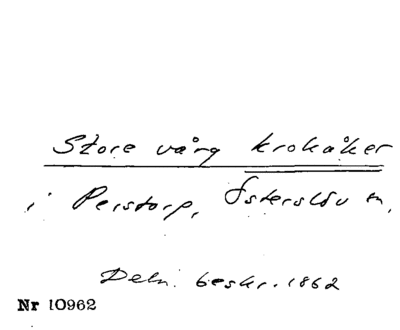 Store vång krokåker
i Perstorp, Österslöv sn.
Deln. beskr. 1862
Nr 10962